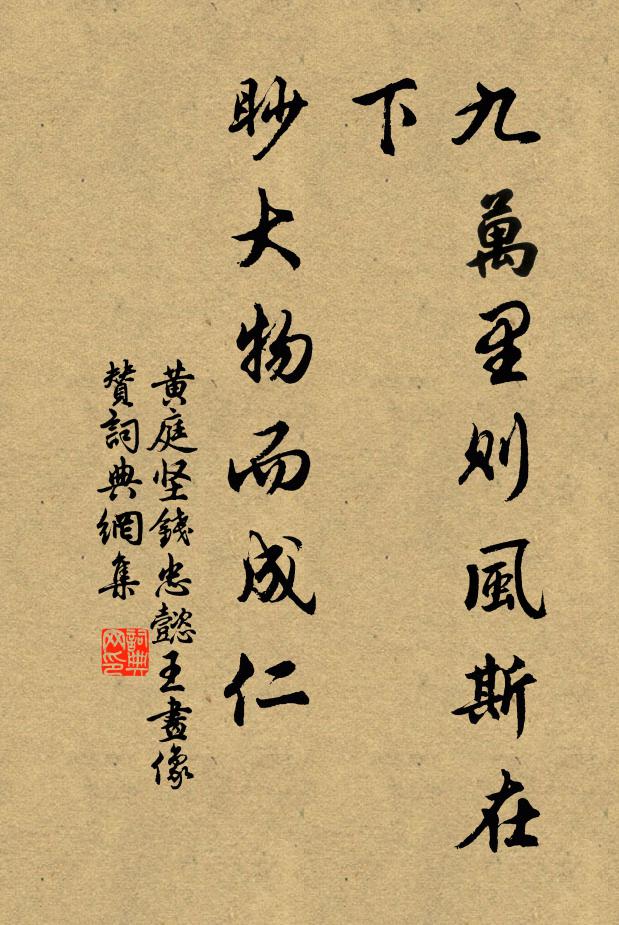 九萬里則風斯在
下
眇大物而成仁
黄庭坚錢忠懿王畫像
贊詞典網集
詞典网印